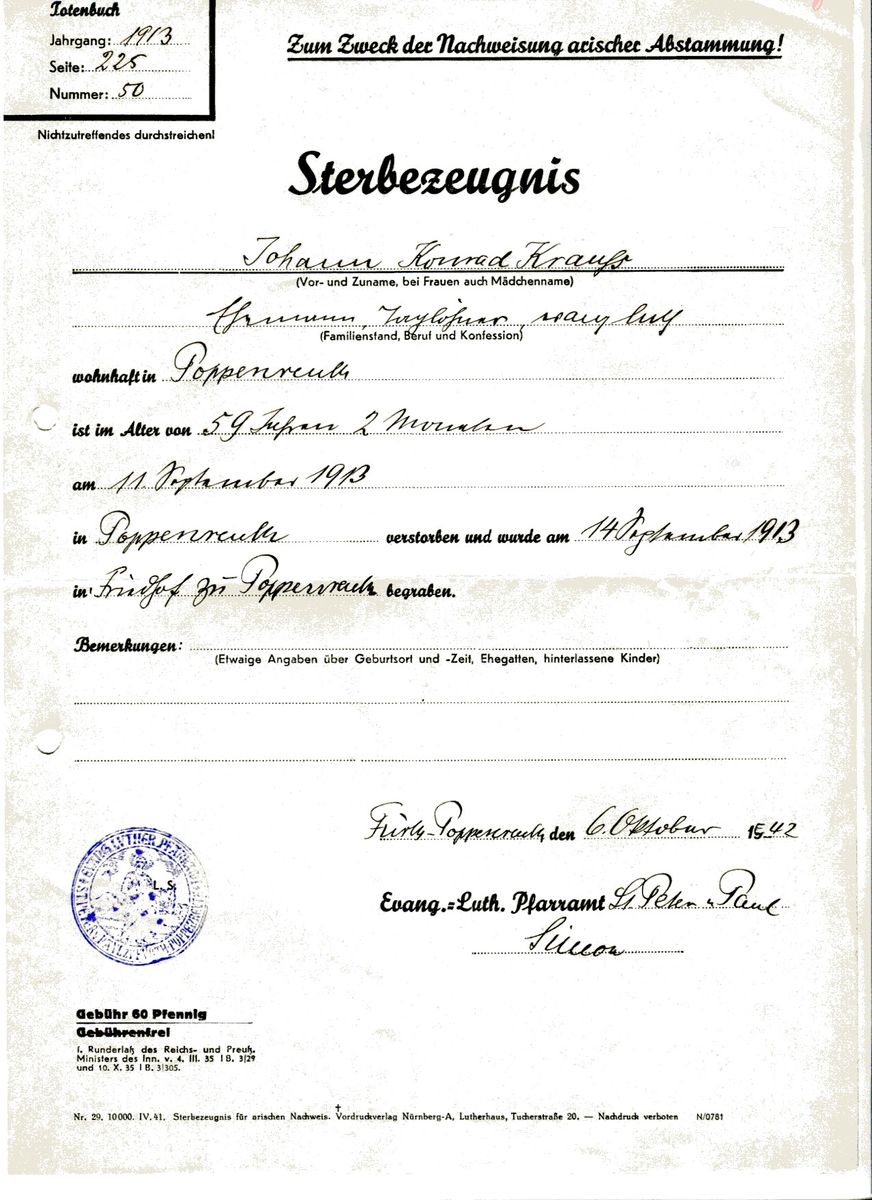 Totenbuch
Jahrgang: 1913
Seite: 225
Nummer: 50
Nichtzutreffendes durchstreichen!
Zum Zweck der Nachweisung arischer Abstammung!
Sterbezeugnis
Johann Konrad Krauß
(Vor- und Zuname, bei Frauen auch Mädchenname)
Ehemann, Taglöhner, evang. luth
(Familienstand, Beruf und Konfession)
wohnhaft in Poppenreuth
ist im Alter von 59 Jahren 2 Monaten
am 11. September 1913
in Poppenreuth verstorben und wurde am 14 September 1913
in Friedhof zu Poppenreuth begraben.
Bemerkungen:
(Etwaige Angaben über Geburtsort und -Zeit, Ehegatten, hinterlassene Kinder)
Fürth-Poppenreuth den 6. Oktober 1942
L. S.
Evang.=Luth. Pfarramt St. Peter u Paul
Simon
Gebühr 60 Pfennig
Gebührenfrei
f. Runderlaß des Reichs- und Preuß.
Ministers des Inn. v. 4. III. 35 I B. 3/29
und 10. X. 35 I B. 3/305.
Nr. 29. 10000. IV. 41. Sterbezeugnis für arischen Nachweis. Vordruckverlag Nürnberg-A, Lutherhaus, Tucherstraße 20. — Nachdruck verboten N/0781